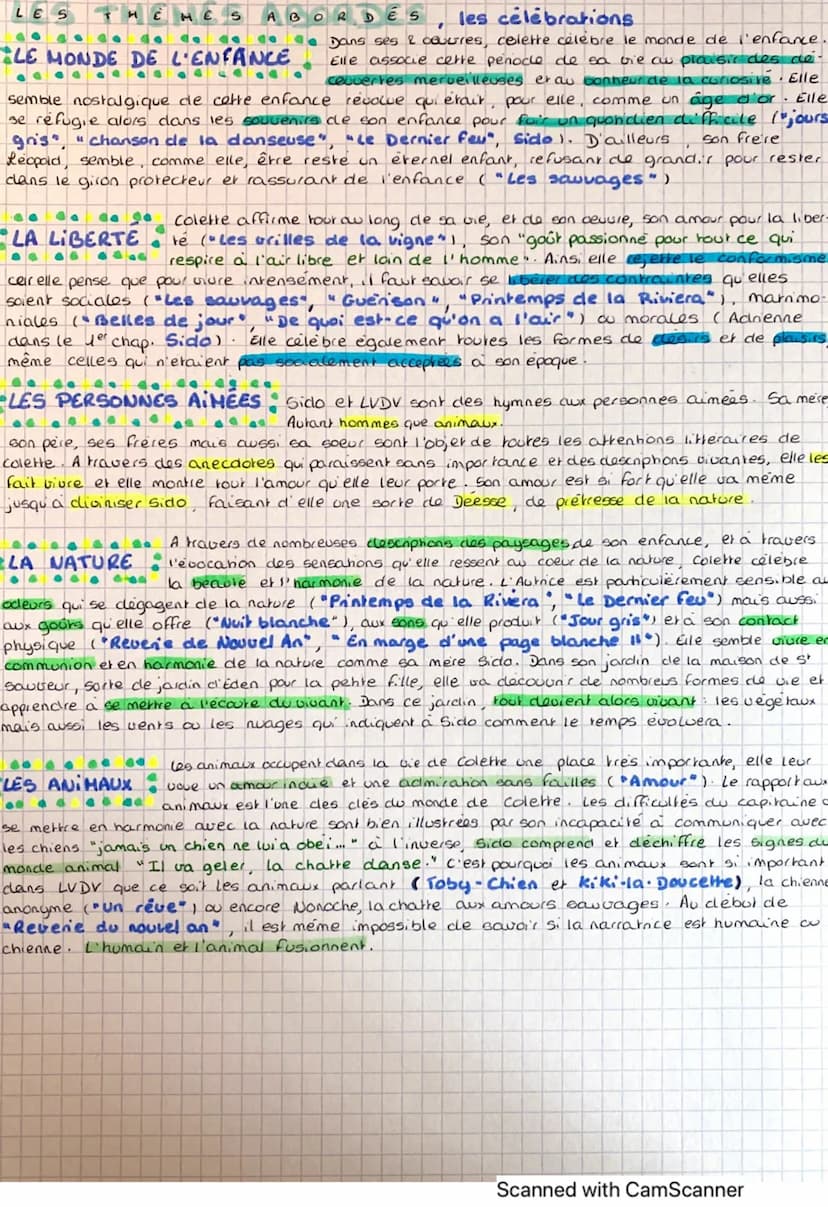 LES THÈMES ABORDÉS, les célébrations
Dans ses 2 œuvres, colette célèbre le monde de l'enfance.
LE MONDE DE L'ENFANCE : Elle associe cette période de sa vie au plaisir des dé-
couvertes merveilleuses et au bonheur de la curiosité. Elle
semble nostalgique de cette enfance révolue qui était, pour elle, comme un âge d'or. Elle
se réfugie alors dans les souvenirs de son enfance pour fuir un quotidien difficile ("jours
gris", "chanson de la danseuse", "Le Dernier feu", Sido). D'ailleurs, son frère
Léopold, semble, comme elle, être resté un éternel enfant, refusant de grandir pour rester
dans le giron protecteur et rassurant de l'enfance ("Les sauvages")
colette affirme tout au long de sa vie, et de son oeuvre, son amour pour la liber-
LA LIBERTÉ : té ("Les vrilles de la vigne"), son "goût passionné pour tout ce qui
respire à l'air libre et loin de l'homme". Ainsi elle rejette le conformisme
car elle pense que pour vivre intensément, il faut savoir se libérer des contraintes qu'elles
soient sociales ("Les sauvages", "Guérison", "Printemps de la Riviera"), matrimo-
niales ("Belles de jour", "De quoi est-ce qu'on a l'air") ou morales (Adrienne
dans le 1er chap. Sido). Elle célèbre également toutes les formes de désirs et de plaisirs
même celles qui n'etaient pas socialement acceptées à son époque.
LES PERSONNES AIMÉES : Sido et LVDV sont des hymnes aux personnes aimées. Sa mère
Autant hommes que animaux.
son père, ses frères mais aussi sa soeur sont l'objet de toutes les attentions littéraires de
colette. A travers des anecdotes qui paraissent sans importance et des descriptions vivantes, elle les
fait vivre et elle montre tout l'amour qu'elle leur porte. son amour est si fort qu'elle va même
jusqu'à diviniser Sido, faisant d'elle une sorte de Déesse, de prêtresse de la nature.
A travers de nombreuses descriptions des paysages de son enfance, et à travers
LA NATURE : l'évocation des sensations qu'elle ressent au coeur de la nature, colette célèbre
la beauté et l'harmonie de la nature. L'Autrice est particulièrement sensible au
odeurs qui se dégagent de la nature ("Printemps de la Rivera", "Le Dernier Feu") mais aussi
aux goûts qu'elle offre ("Nuit blanche"), aux sons qu'elle produit ("Jour gris") et à son contact
physique ("Reverie de Nouvel An", "En marge d'une page blanche II"). Elle semble vivre en
communion et en harmonie de la nature comme sa mère Sido. Dans son jardin de la maison de St
Sauveur, sorte de jardin d'Éden pour la petite fille, elle va découvrir de nombreus formes de vie et
apprendre à se mettre à l'écoute du vivant. Dans ce jardin, tout devient alors vivant : les végétaux
mais aussi les vents ou les nuages qui indiquent à Sido comment le temps évoluera.
Les animaux occupent dans la vie de Colette une place très importante, elle leur
LES ANIMAUX : voue un amour inouïe et une admiration sans failles ("Amour"). Le rapport aux
animaux est l'une des clés du monde de colette. Les difficultés du capitaine à
se mettre en harmonie avec la nature sont bien illustrées par son incapacité à communiquer avec
les chiens "jamais un chien ne lui a obéi..." à l'inverse, Sido comprend et déchiffre les signes du
monde animal "Il va geler, la chatte danse." C'est pourquoi les animaux sont si important
dans LVDV que ce soit les animaux parlant (Toby-Chien et Kiki-la-Doucette), la chienne
anonyme ("Un rêve") ou encore Nonoche, la chatte aux amours sauvages. Au début de
"Reverie du nouvel an", il est même impossible de savoir si la narratrice est humaine ou
chienne. L'humain et l'animal fusionnent.
Scanned with CamScanner